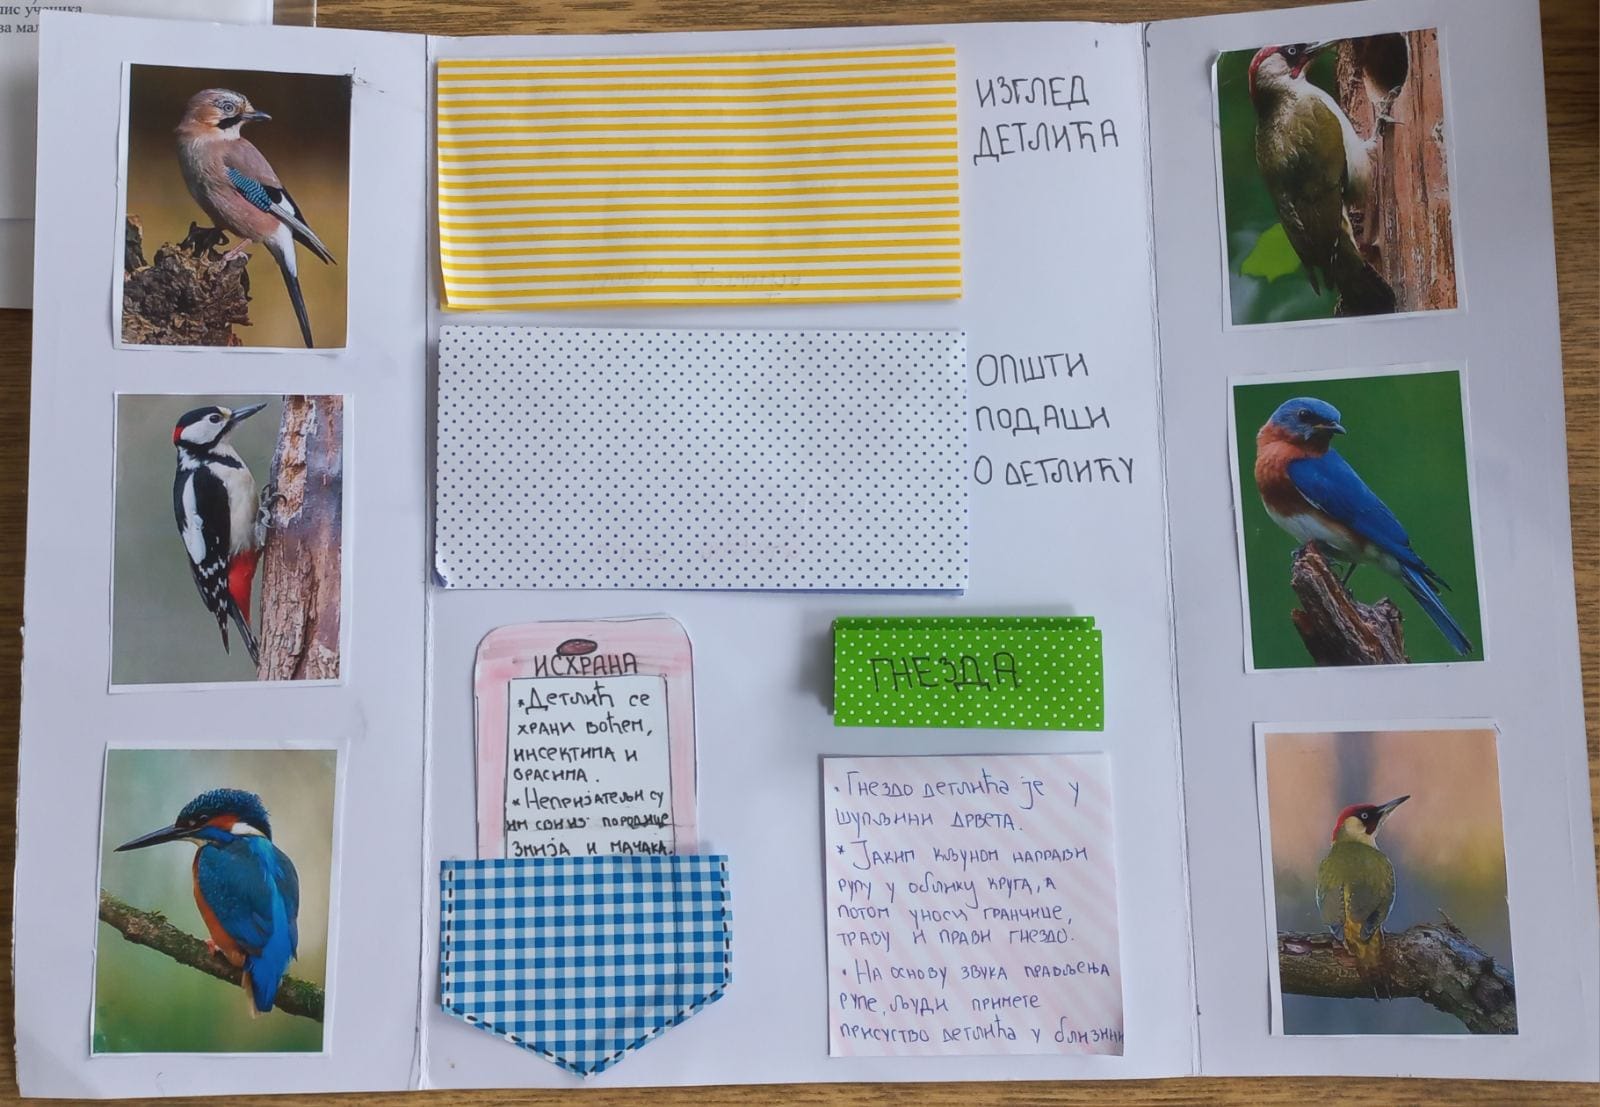 ученика
ИЗГЛЕД
ДЕТЛИЋА
ОПШТИ
ПОДАЦИ
О ДЕТЛИЋУ
ИСХРАНА
*Детлић се
храни воћем,
инсектима и
орасима.
*Непријатељи су
им сви из породице
змија и мачака.
ГНЕЗДА
• Гнездо детлића је у
шупљини дрвета.
* Јаким кљуном направи
рупу у облику круга, а
потом уноси гранчице,
траву и прави гнездо.
• На основу звука прављења
рупе, људи примете
присуство детлића у близини